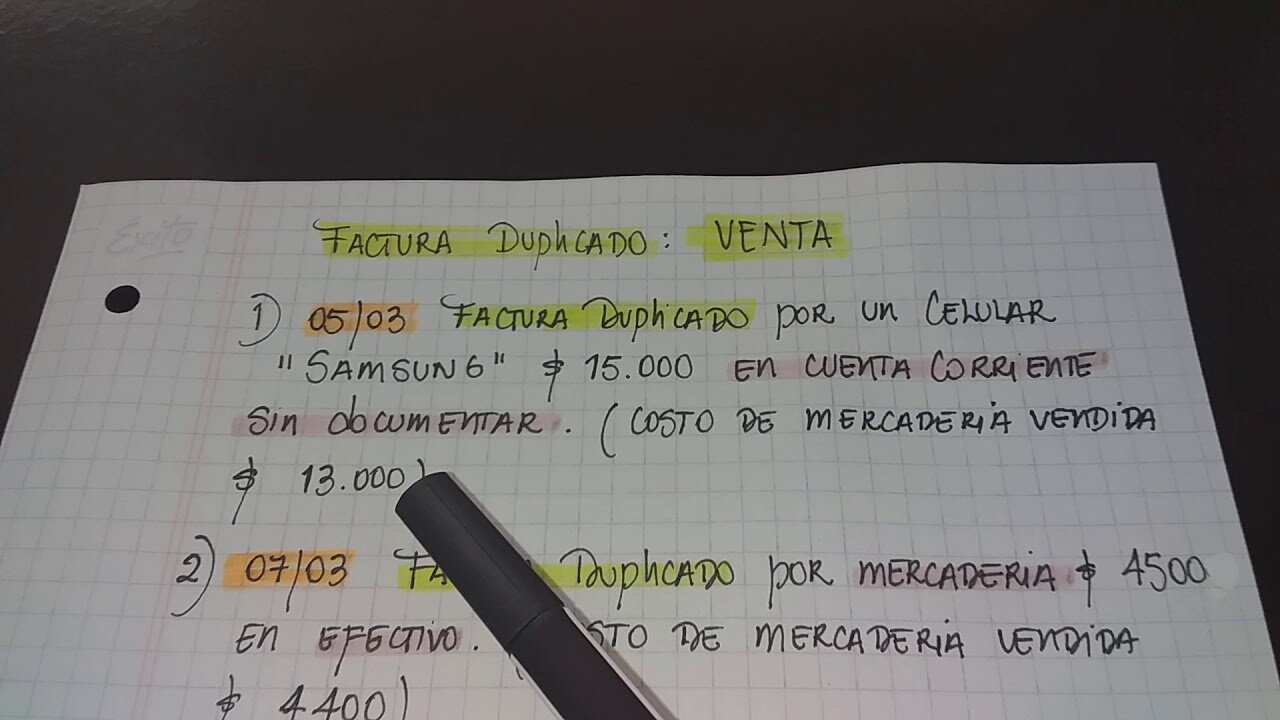 Éxito
FACTURA DUPLICADO: VENTA
1) 05/03 FACTURA DUPLICADO POR UN CELULAR
"SAMSUNG" $ 15.000 EN CUENTA CORRIENTE
SIN DOCUMENTAR. (COSTO DE MERCADERIA VENDIDA
$ 13.000)
2) 07/03 DUPLICADO POR MERCADERIA $ 4500
EN EFECTIVO. DE MERCADERIA VENDIDA
$ 4400)